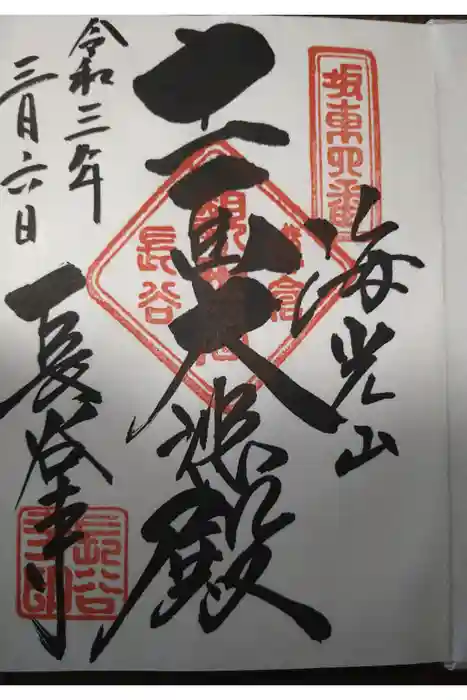 坂東四番
海光山
十一面大悲殿
鎌倉
観世音
長谷
長谷寺
長谷寺印
令和三年
三月六日